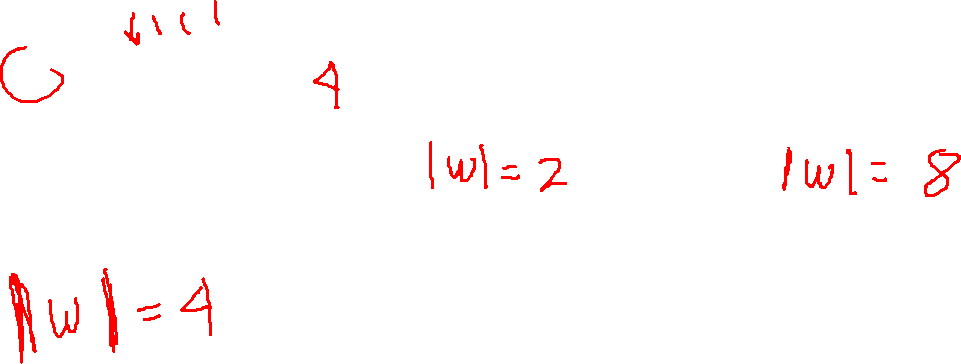 4
|w| = 2 |w| = 8
|w| = 4